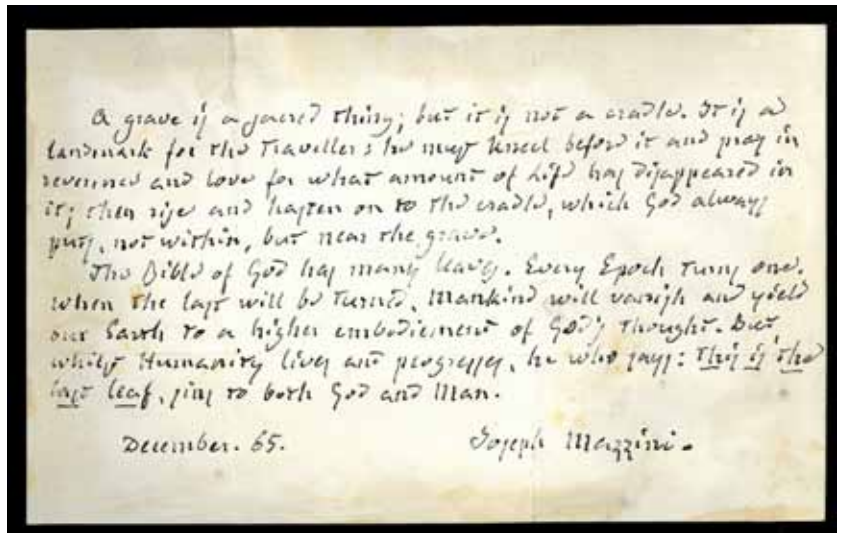 A grave is a sacred thing; but it is not a cradle. It is a
landmark for the Traveller: he must kneel before it and pray in
reverence and love for what amount of Life has disappeared in
it; then rise and hasten on to the cradle, which God always
puts, not within, but near the grave.
The Bible of God has many leaves. Every Epoch turns one.
When the last will be turned, Mankind will vanish and yield
our Earth to a higher embodiement of God's thought. But
whilst Humanity lives and progresses, he who says: this is the
last leaf, sins to both God and Man.
December. 65. Joseph Mazzini.